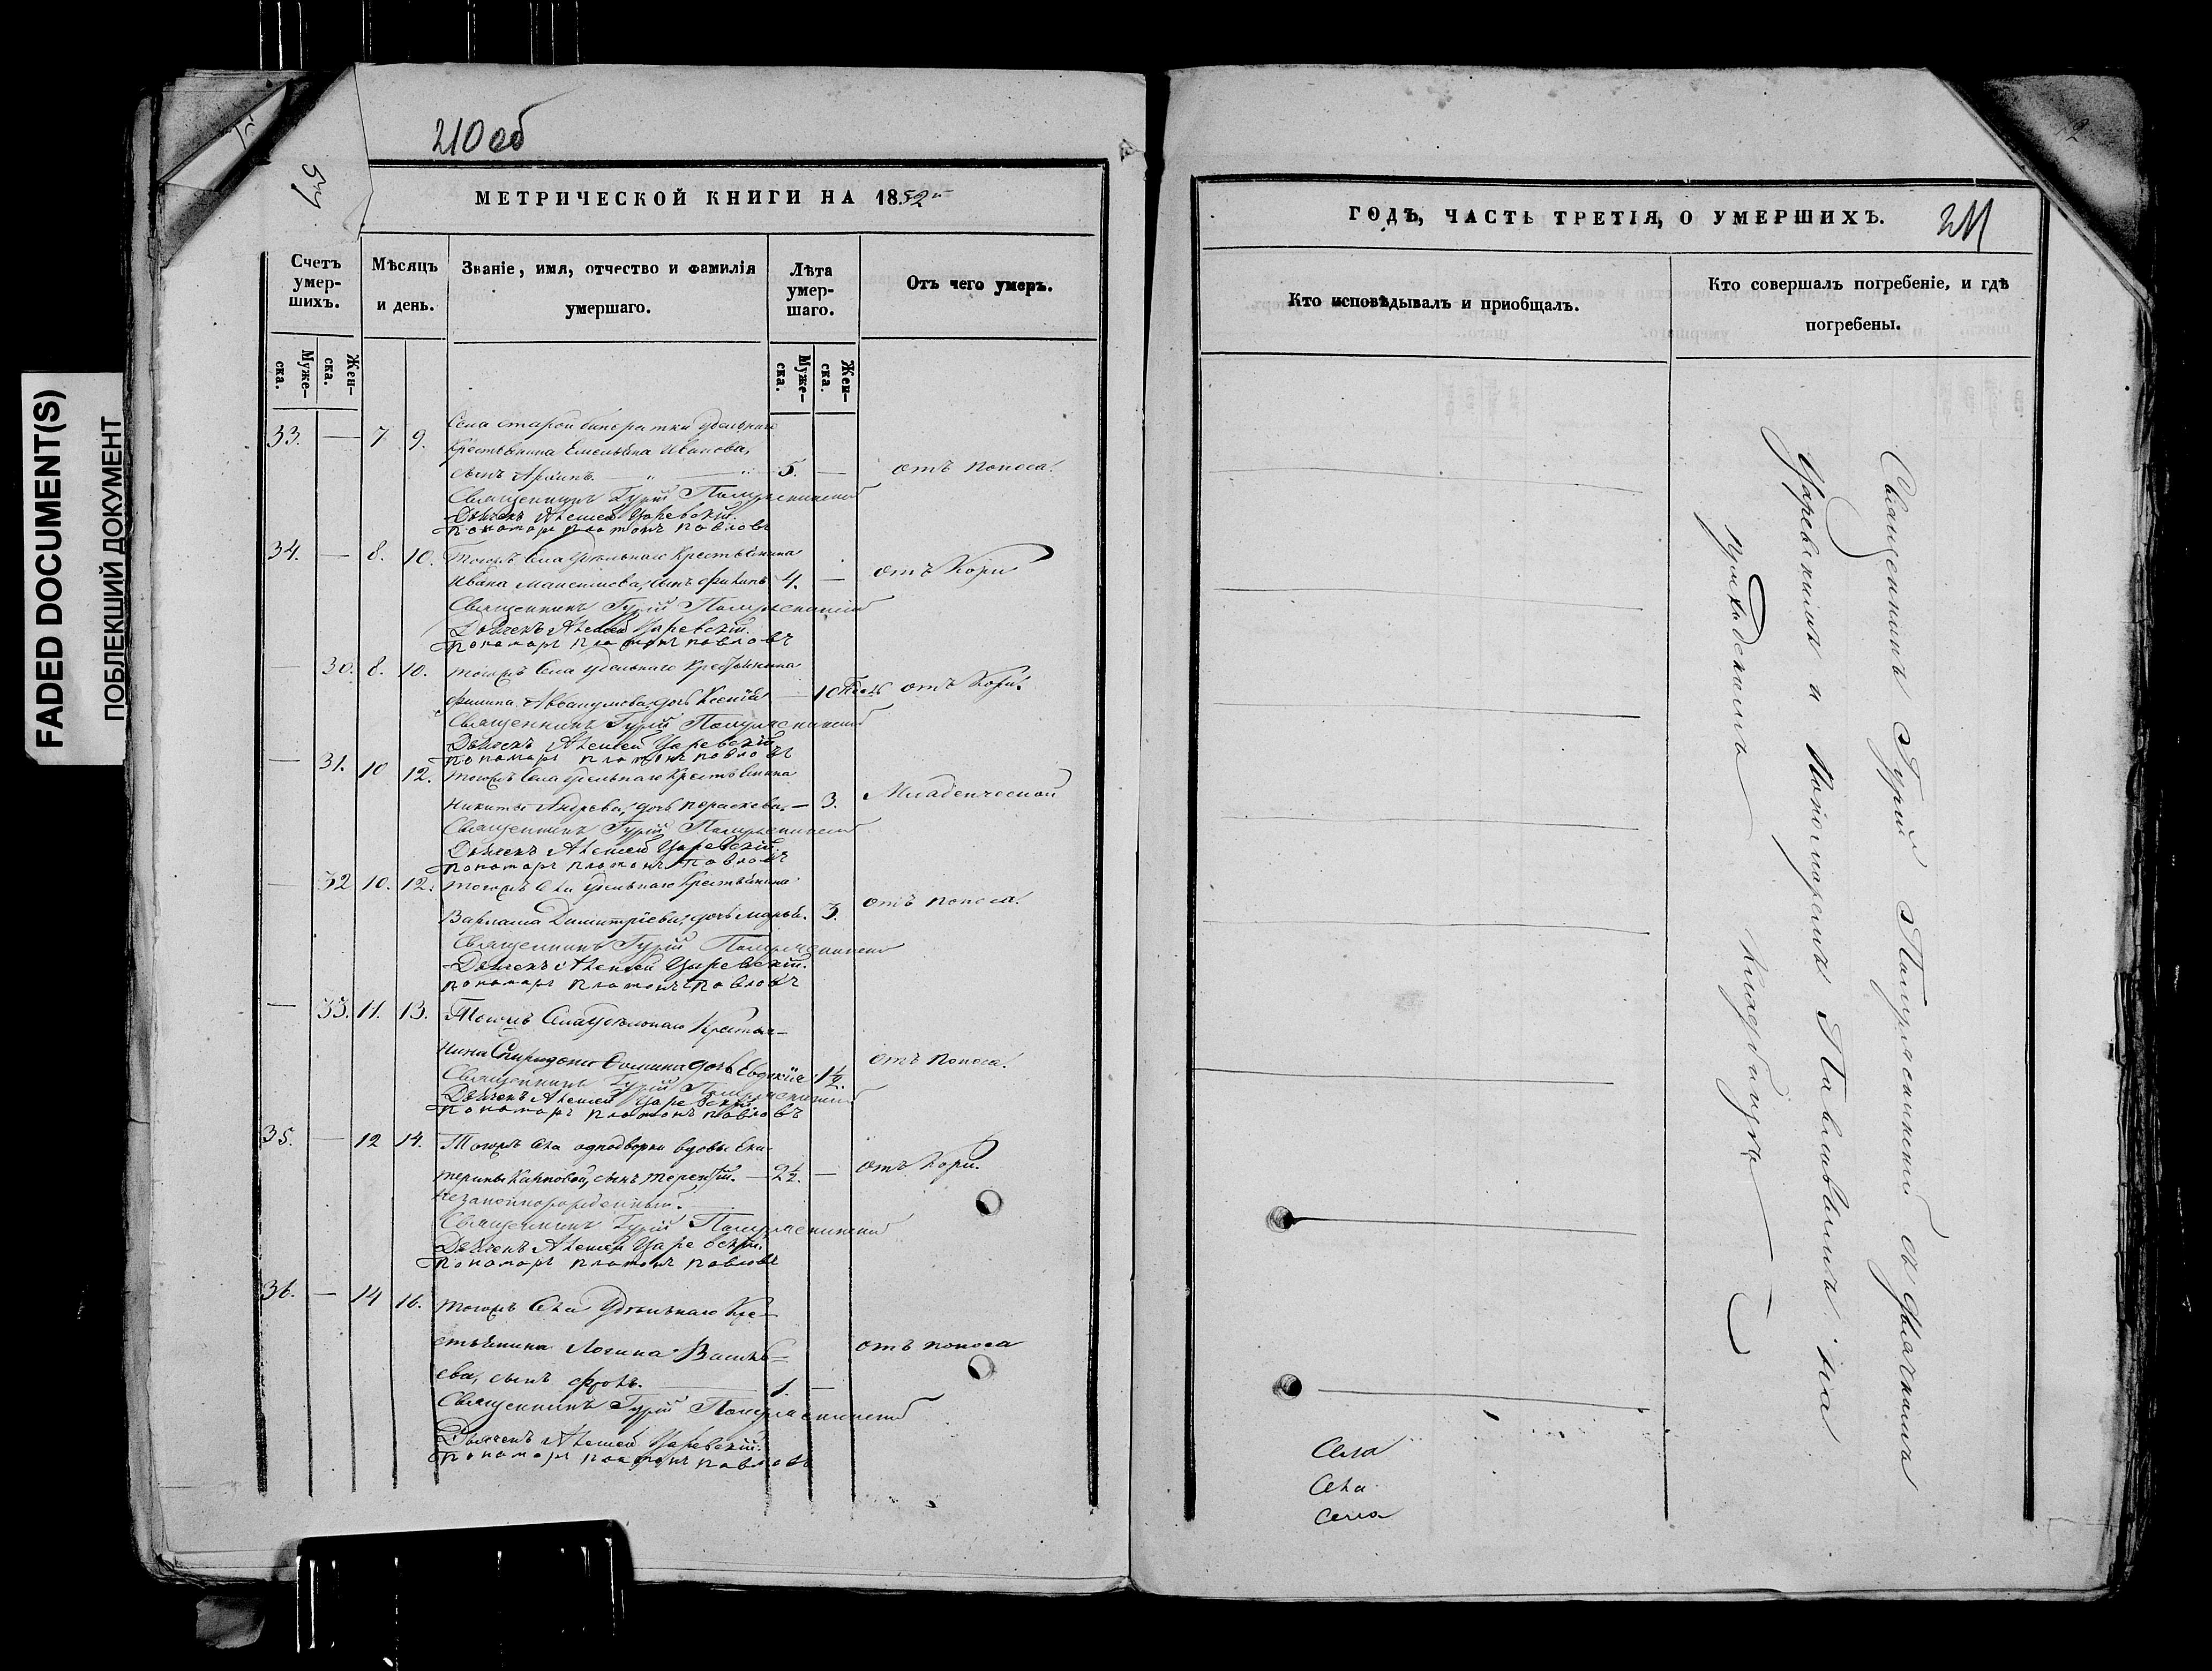 FADED DOCUMENT(S)
ПОБЛЕКШИЙ ДОКУМЕНТ
210 об
МЕТРИЧЕСКОЙ КНИГИ НА 1852
Счетъ умер-шихъ.
Мѣсяцъ и день.
Званіе, имя, отчество и фамилія умершаго.
Лѣта умер-шаго.
Отъ чего умеръ.
Муже-ска.
Жен-ска.
Муже-ска.
Жен-ска.
33. — 7 9. Села Старой удѣльнаго
Крестьянина Емельяна Иванова,
сынъ — 5. — отъ поноса.
Священникъ Гурій
Дьячекъ Алексей Царевскій.
Пономарь Платонъ Павловъ
34. — 8. 10. Тогожъ Села Удѣльнаго Крестьянина
Ивана Максимова, сынъ 4. — отъ Кори
Священникъ Гурій
Дьячекъ Алексей Царевскій.
Пономарь Платонъ Павловъ
— 30. 8. 10. Тогожъ Села удѣльнаго Крестьянина
Филипа Аввакумова, дочь Ксенія — 10 отъ Кори.
Священникъ Гурій
Дьячекъ Алексей Царевскій
Пономарь Платонъ Павловъ
— 31. 10 12. Тогожъ Села удѣльнаго Крестьянина
Никиты Андреева, дочь Параскева. — 3. Младенческой
Священникъ Гурій
Дьячекъ Алексей Царевскій.
Пономарь Платонъ Павловъ
— 32 10. 12. Тогожъ Села Удѣльнаго Крестьянина
Варлама Димитріева, дочь 3. отъ поноса.
Священникъ Гурій
Дьячекъ Алексей Царевскій.
Пономарь Платонъ Павловъ
— 33. 11. 13. Тогожъ Села Удѣльнаго Крестья-
нина Спиридона дочь Евдокія 1½. отъ поноса.
Священникъ Гурій
Дьячекъ Алексей Царевскій
Пономарь Платонъ Павловъ
35. — 12 14. Тогожъ Села однодворки вдовы Ека-
терины Карповой, сынъ Терентій. — 2½. — отъ Кори.
Незаконнорожденный.
Священникъ Гурій
Дьячекъ Алексей Царевскій.
Пономарь Платонъ Павловъ
36. — 14 16. Тогожъ Села Удѣльнаго Кре-
стьянина Логина Василь-
ева, сынъ Фролъ. — 1. — отъ поноса
Священникъ Гурій
Дьячекъ Алексей Царевскій.
Пономарь Платонъ Павловъ
ГОДЪ, ЧАСТЬ ТРЕТІЯ, О УМЕРШИХЪ.
211
Кто исповѣдывалъ и приобщалъ.
Кто совершалъ погребеніе, и гдѣ погребены.
Священникъ Гурій съ Дьячкомъ
Царевскимъ и Пономаремъ Павловымъ на
приходскомъ кладбищѣ
Села
Села
Села